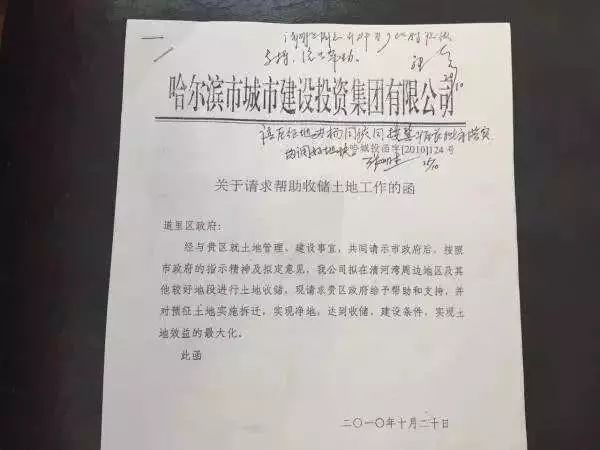 支持,给予帮助.
哈尔滨市城市建设投资集团有限公司
哈城投函字[2010]124号
关于请求帮助收储土地工作的函
道里区政府:
经与贵区就土地管理、建设事宜,共同请示市政府后,按照
市政府的指示精神及拟定意见,我公司拟在清河湾周边地区及其
他较好地段进行土地收储,现请求贵区政府给予帮助和支持,并
对预征土地实施拆迁,实现净地,达到收储、建设条件,实现土
地效益的最大化。
此函
二〇一〇年十月二十日